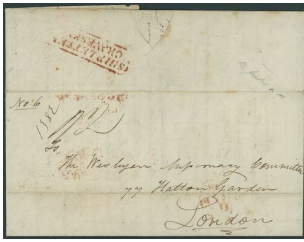 SHIP LETTER
GRAVESEND
No 6
1882
To
The Wesleyan Missionary Committee
77 Hatton Garden
London